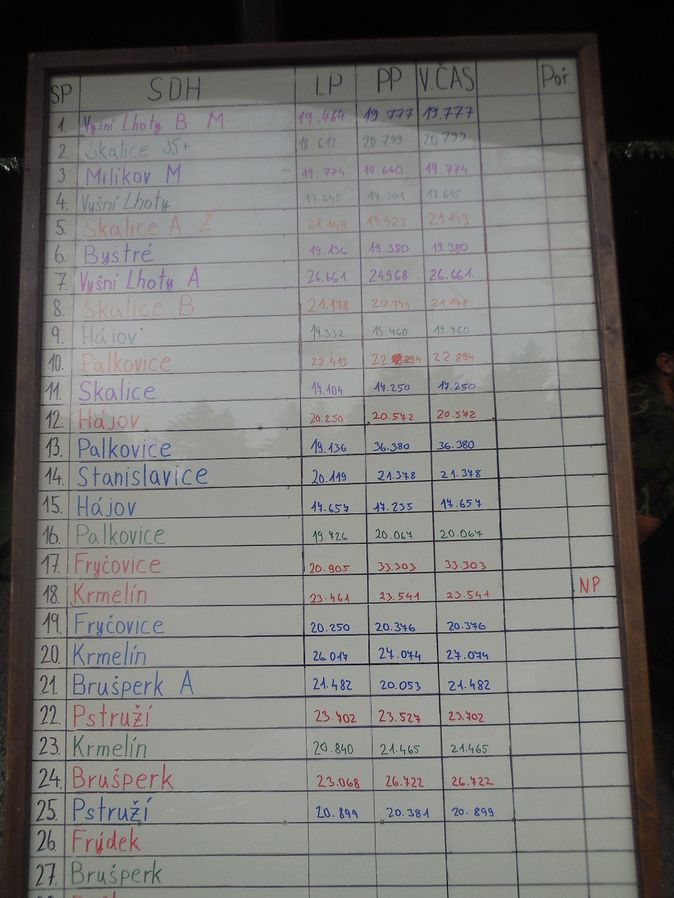 SP SDH LP PP V.ČAS Poř.
1. Vyšní Lhoty B M 19.464 19.777 19.777
2. Skalice 35+ 18.612 20.799 20.799
3. Milíkov M 19.774 19.660 19.774
4. Vyšní Lhoty 17.645 17.301 17.645
5. Skalice A Ž 21.149 19.922 21.149
6. Bystré 19.136 19.380 19.380
7. Vyšní Lhoty A 26.661 24968 26.661
8. Skalice B 21.178 20.744 21.178
9. Hájov 19.332 19.460 19.460
10. Palkovice 22.413 22.894 22.894
11. Skalice 17.104 17.250 17.250
12. Hájov 20.250 20.572 20.572
13. Palkovice 19.136 36.380 36.380
14. Stanislavice 20.119 21.378 21.378
15. Hájov 17.657 17.235 17.657
16. Palkovice 19.726 20.067 20.067
17. Fryčovice 20.905 33.303 33.303
18. Krmelín 23.461 23.541 23.541 NP
19. Fryčovice 20.250 20.376 20.376
20. Krmelín 26.017 27.074 27.074
21. Brušperk A 21.482 20.053 21.482
22. Pstruží 23.702 23.527 23.702
23. Krmelín 20.840 21.465 21.465
24. Brušperk 23.068 26.722 26.722
25. Pstruží 20.899 20.381 20.899
26. Frýdek
27. Brušperk